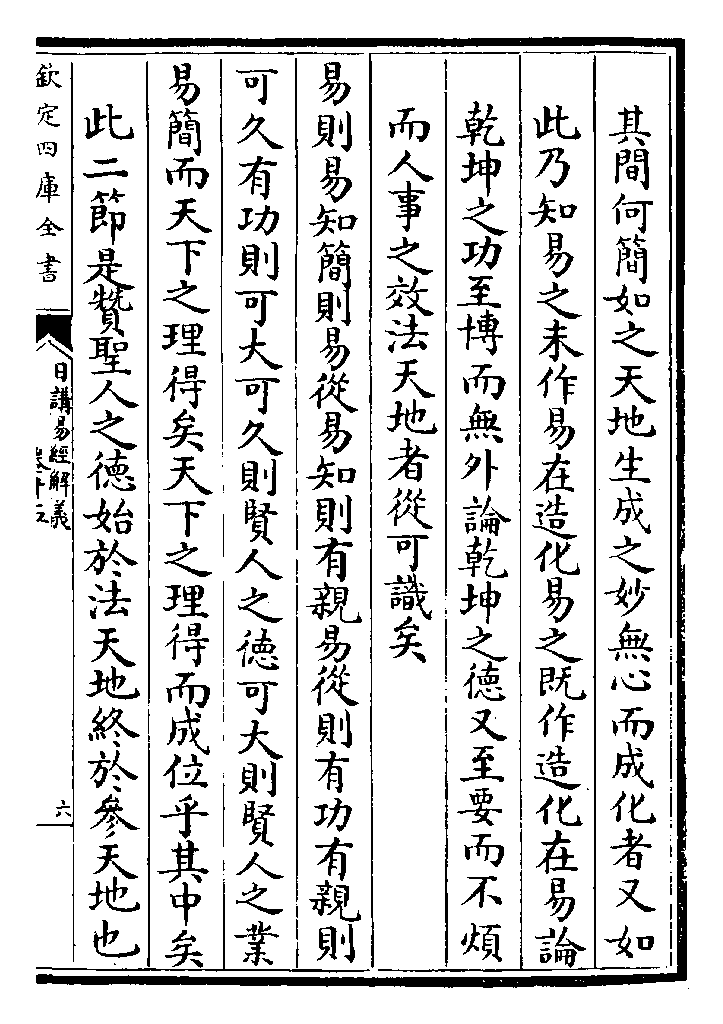 其間何簡如之天地生成之妙無心而成化者又如
此乃知易之未作易在造化易之既作造化在易論
乾坤之功至博而無外論乾坤之德又至要而不煩
而人事之效法天地者從可識矣
易則易知簡則易從易知則有親易從則有功有親則
可久有功則可大可久則賢人之德可大則賢人之業
易簡而天下之理得矣天下之理得而成位乎其中矣
此二節是贊聖人之德始於法天地終於參天地也
欽定四庫全書
日講易經解義
卷十五
六